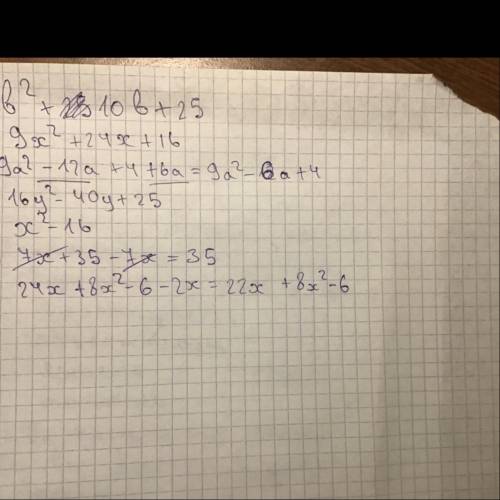 b² + 10b + 25
9x² + 24x + 16
9a² - 12a + 4 + 6a = 9a² - 6a + 4
16y² - 40y + 25
x² - 16
7x + 35 - 7x = 35
24x + 8x² - 6 - 2x = 22x + 8x² - 6